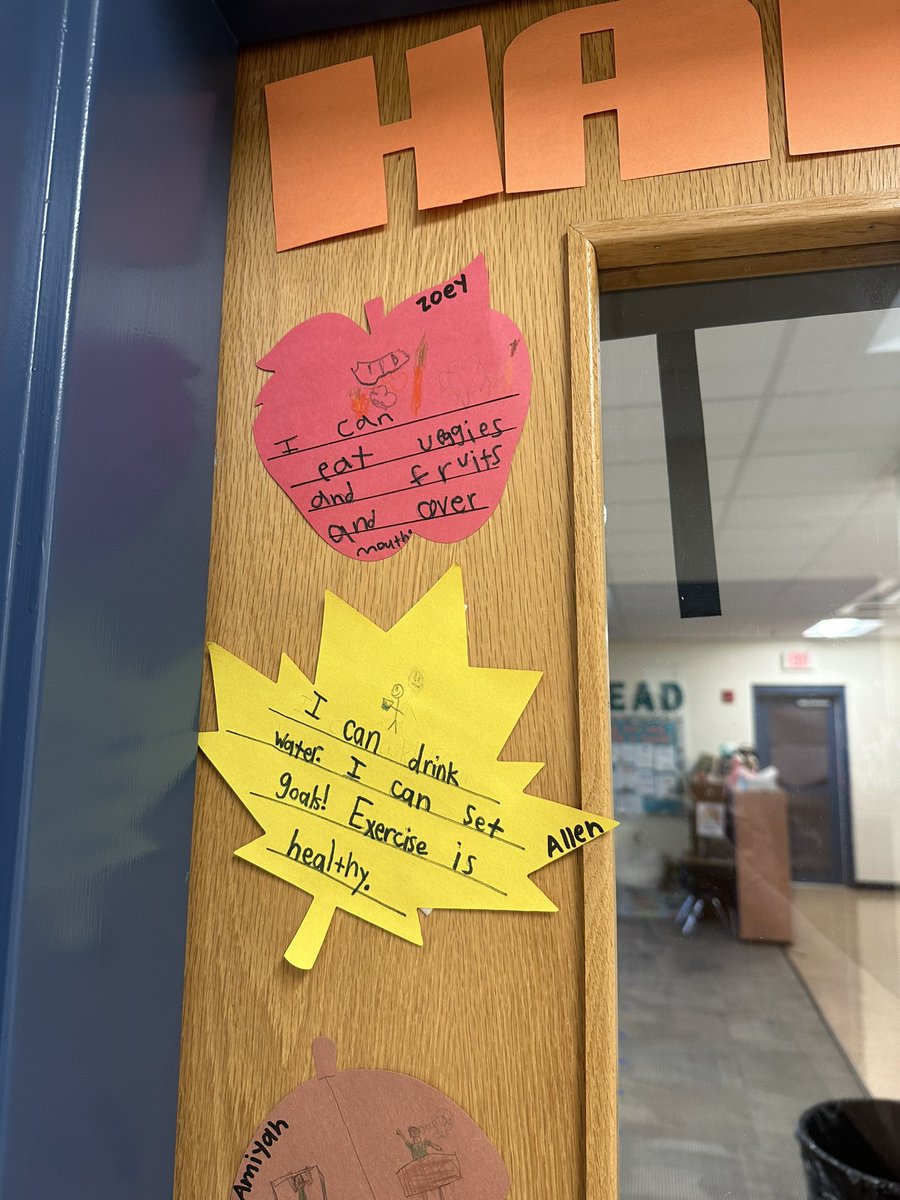 HA
zoey
I can
eat veggies
and fruits
and cover
mouth.
I can drink
water. I can set
goals! Exercise is
healthy.
Allen
Amiyah
EAD
EXIT